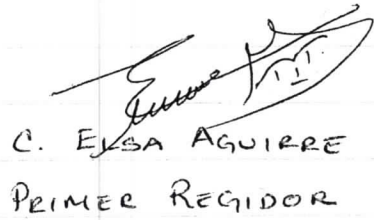 C. ELSA AGUIRRE
PRIMER REGIDOR